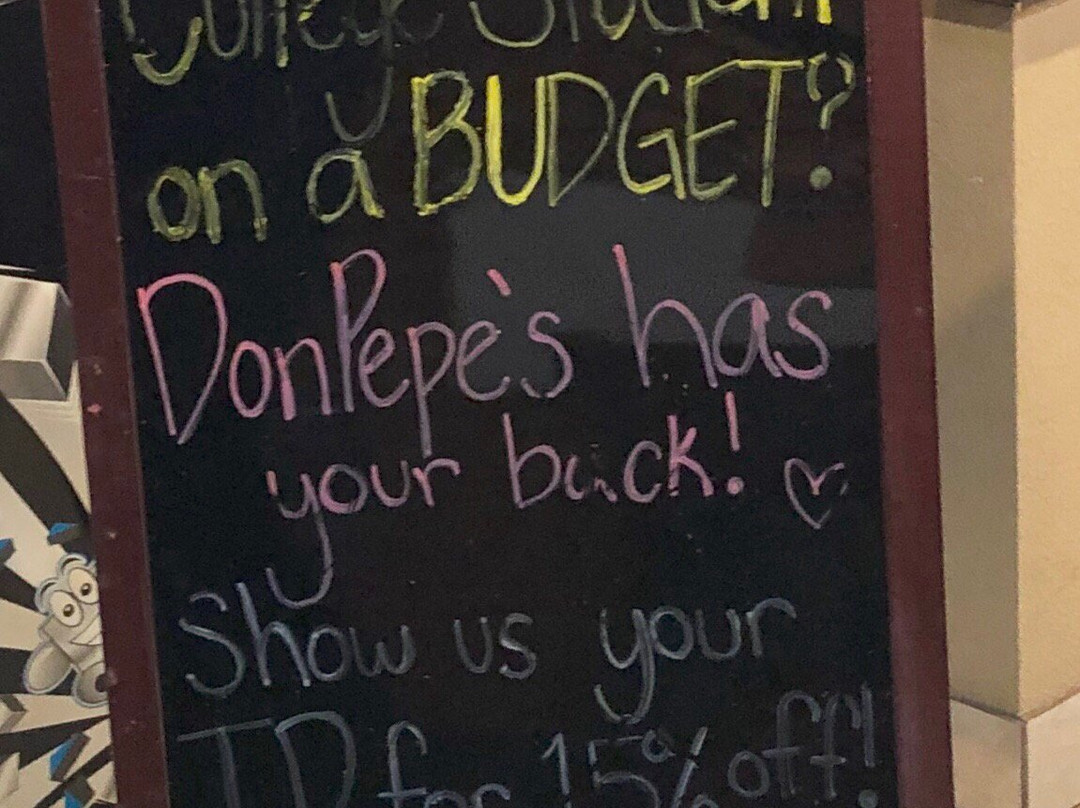 College Student
on a BUDGET?
DonPepe's has
your back! ♡
Show us your
ID for 15% off!